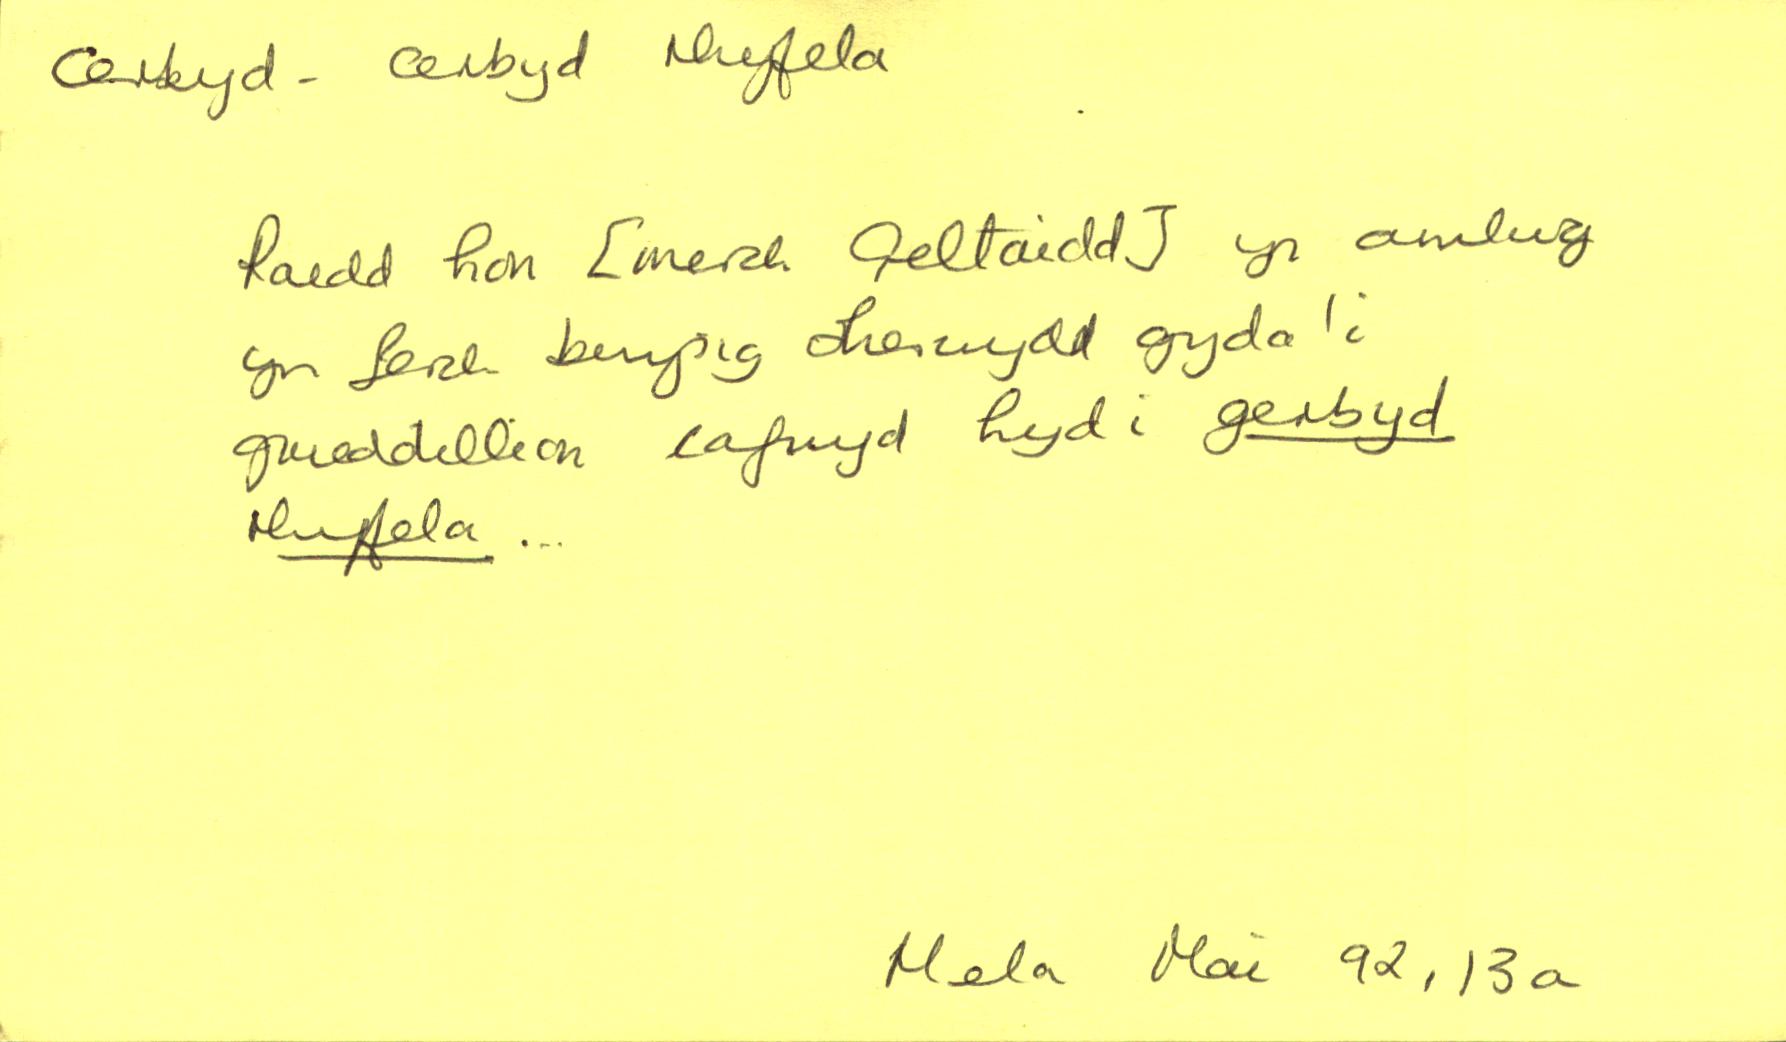 Cerbyd - cerbyd rhyfela
Roedd hon [merch Geltaidd] yn amlwg
yn ferch bwysig oherwydd gyda'i
gweddillion cafwyd hyd i gerbyd
rhyfela ...
Mela Mai 92, 13a